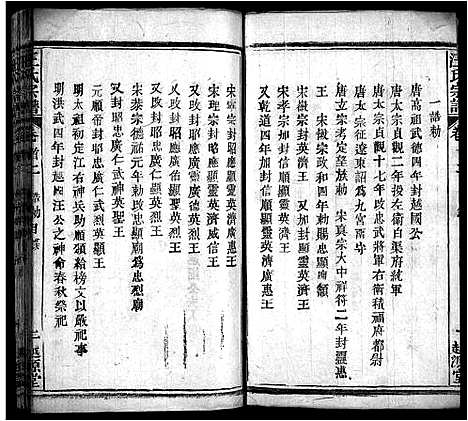 汪氏宗譜
一誥勅
唐高祖武德四年封越國公
唐太宗貞觀二年授左衛白渠府統軍
唐太宗貞觀十七年改忠武將軍右衛積福府都尉
唐太宗征遼東詔為九宮留守
唐立宗考定皇族勅 宋真宗大中祥符二年封靈惠
王 宋徽宗政和四年勅賜忠顯廟 又封英濟王
宋孝宗加封信順顯靈英濟王
又乾道四年加封信順顯靈英濟廣惠王
宋理宗封昭應廣佑顯靈英濟威信王
又改封昭應廣濟靈應威德英烈王
又改封昭應廣佑顯聖英烈王
宋恭宗德祐元年勅改忠顯廟為忠烈廟
又封昭忠廣仁武神英聖王
元順帝封昭忠廣仁武烈英顯王
明太祖初定江右神兵助順頒給榜文以嚴祀事
明洪武四年封越國汪公之神命春秋祭祀
汪氏宗譜
越源堂
越源堂